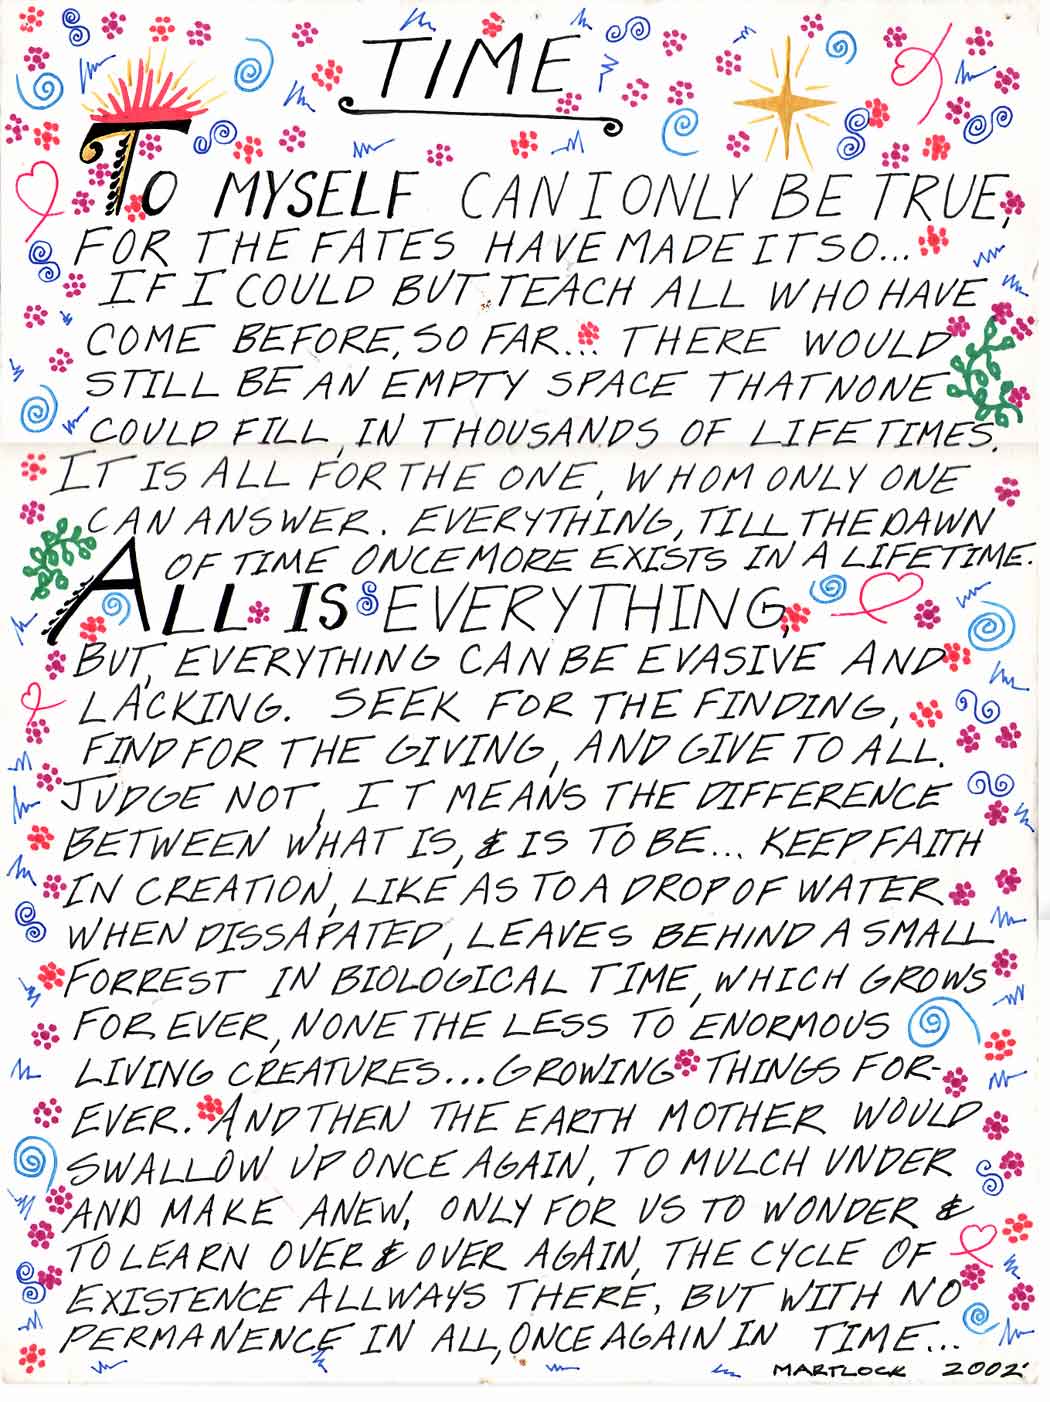 TIME
TO MYSELF CAN I ONLY BE TRUE,
FOR THE FATES HAVE MADE IT SO...
IF I COULD BUT TEACH ALL WHO HAVE
COME BEFORE, SO FAR... THERE WOULD
STILL BE AN EMPTY SPACE THAT NONE
COULD FILL, IN THOUSANDS OF LIFETIMES.
IT IS ALL FOR THE ONE, WHOM ONLY ONE
CAN ANSWER. EVERYTHING, TILL THE DAWN
OF TIME ONCE MORE EXISTS IN A LIFETIME.
ALL IS EVERYTHING,
BUT, EVERYTHING CAN BE EVASIVE AND
LACKING. SEEK FOR THE FINDING,
FIND FOR THE GIVING, AND GIVE TO ALL.
JUDGE NOT, IT MEANS THE DIFFERENCE
BETWEEN WHAT IS, & IS TO BE... KEEP FAITH
IN CREATION, LIKE AS TO A DROP OF WATER
WHEN DISSAPATED, LEAVES BEHIND A SMALL
FORREST IN BIOLOGICAL TIME, WHICH GROWS
FOR EVER, NONE THE LESS TO ENORMOUS
LIVING CREATURES... GROWING THINGS FOR-
EVER. AND THEN THE EARTH MOTHER WOULD
SWALLOW UP ONCE AGAIN, TO MULCH UNDER
AND MAKE ANEW, ONLY FOR US TO WONDER &
TO LEARN OVER & OVER AGAIN, THE CYCLE OF
EXISTENCE ALLWAYS THERE, BUT WITH NO
PERMANENCE IN ALL, ONCE AGAIN IN TIME...
MARTLOCK 2002'